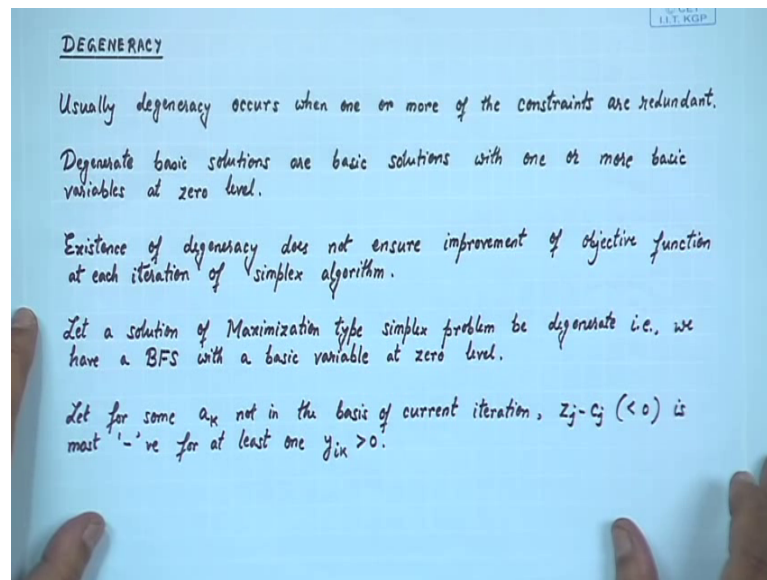 © CET
I.I.T. KGP
DEGENERACY
Usually degeneracy occurs when one or more of the constraints are redundant.
Degenerate basic solutions are basic solutions with one or more basic
variables at zero level.
Existence of degeneracy does not ensure improvement of objective function
at each iteration of simplex algorithm.
Let a solution of Maximization type simplex problem be degenerate i.e., we
have a BFS with a basic variable at zero level.
Let for some aₖ not in the basis of current iteration, Zj-Cj (<0) is
most '-'ve for at least one yᵢₖ >0.